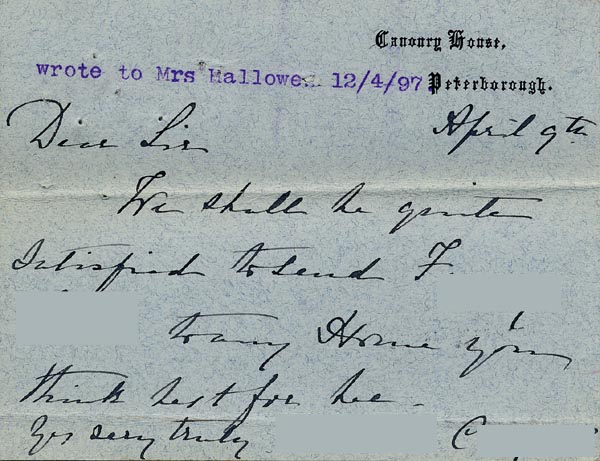 Canonry House,
wrote to Mrs Hallowes 12/4/97 Peterborough.
April 9th
Dear Sir
We shall be quite
satisfied to send F
to any Home you
think best for her.
Yrs very truly C